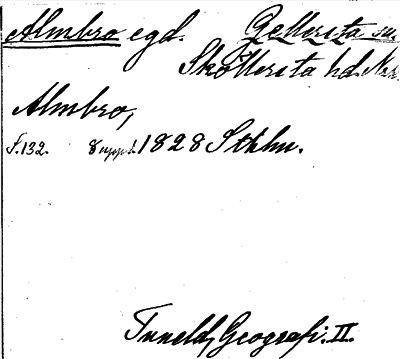 Almbro egd. Gellersta sn.
Sköllersta hd. Nke.
Almbro,
s. 132. 8 uppl. 1828 Sthlm.
Tuneld, Geografi. II.